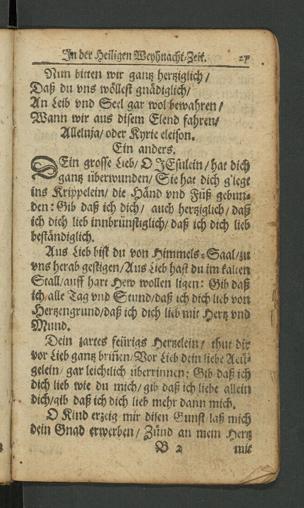 In der Heiligen Weyhnacht-Zeit. 27
Nun bitten wir gantz hertziglich/
Daß du vns wöllest gnädiglich/
An Leib vnd Seel gar wol bewahren/
Wann wir aus disem Elend fahren/
Alleluja/ oder Kyrie eleison.
Ein anders.
DEin grosse Lieb/ O JEsulein/ hat dich
gantz überwunden/ Sie hat dich g'legt
ins Krippelein/ die Händ vnd Füß gebun-
den: Gib daß ich dich/ auch hertziglich/ daß
ich dich lieb innbrünstiglich/ daß ich dich lieb
beständiglich.
Aus Lieb bist du von Himmels-Saal/zu
vns herab gestigen/Aus Lieb hast du im kalten
Stall/auff hart Hew wollen ligen: Gib daß
ich/alle Tag vnd Stund/daß ich dich lieb von
Hertzengrund/daß ich dich lieb mit Hertz vnd
Mund.
Dein zartes feürigs Hertzelein/ thut dir
vor Lieb gantz brinnen/Vor Lieb dein liebe Aeü-
gelein/ gar leichtlich überrinnen: Gib daß ich
dich lieb wie du mich/ gib daß ich liebe allein
dich/gib daß ich dich lieb mehr dann mich.
O Kind erzeig mir disen Gunst laß mich
dein Gnad erwerben/ Zünd an mein Hertz
B 2 mit